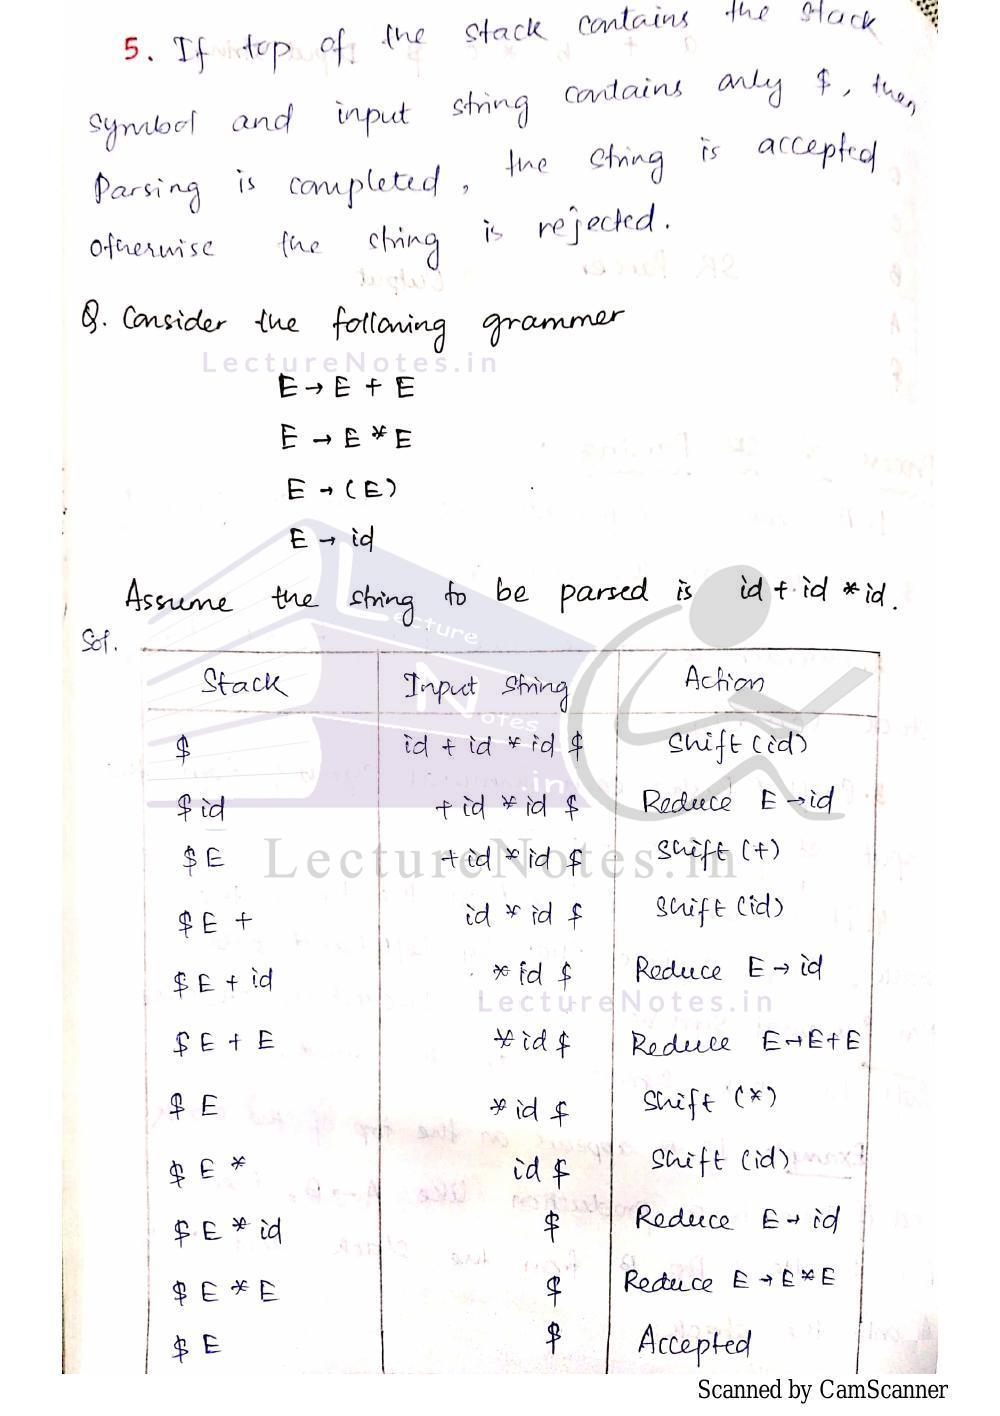 5. If top of the stack contains the stack
symbol and input string contains only $, then
Parsing is completed, the string is accepted
otherwise the string is rejected.
Q. Consider the following grammer
LectureNotes.in
E → E + E
E → E * E
E → (E)
E → id
Assume the string to be parsed is id + id * id.
Sol.
Lecture Notes .in
Stack Input string Action
$ id + id * id $ Shift (id)
$ id + id * id $ Reduce E → id
$ E + id * id $ Shift (+)
LectureNotes.in
$ E + id * id $ Shift (id)
$ E + id * id $ Reduce E → id
LectureNotes.in
$ E + E * id $ Reduce E → E + E
$ E * id $ Shift (*)
$ E * id $ Shift (id)
$ E * id $ Reduce E → id
$ E * E $ Reduce E → E * E
$ E $ Accepted
Scanned by CamScanner